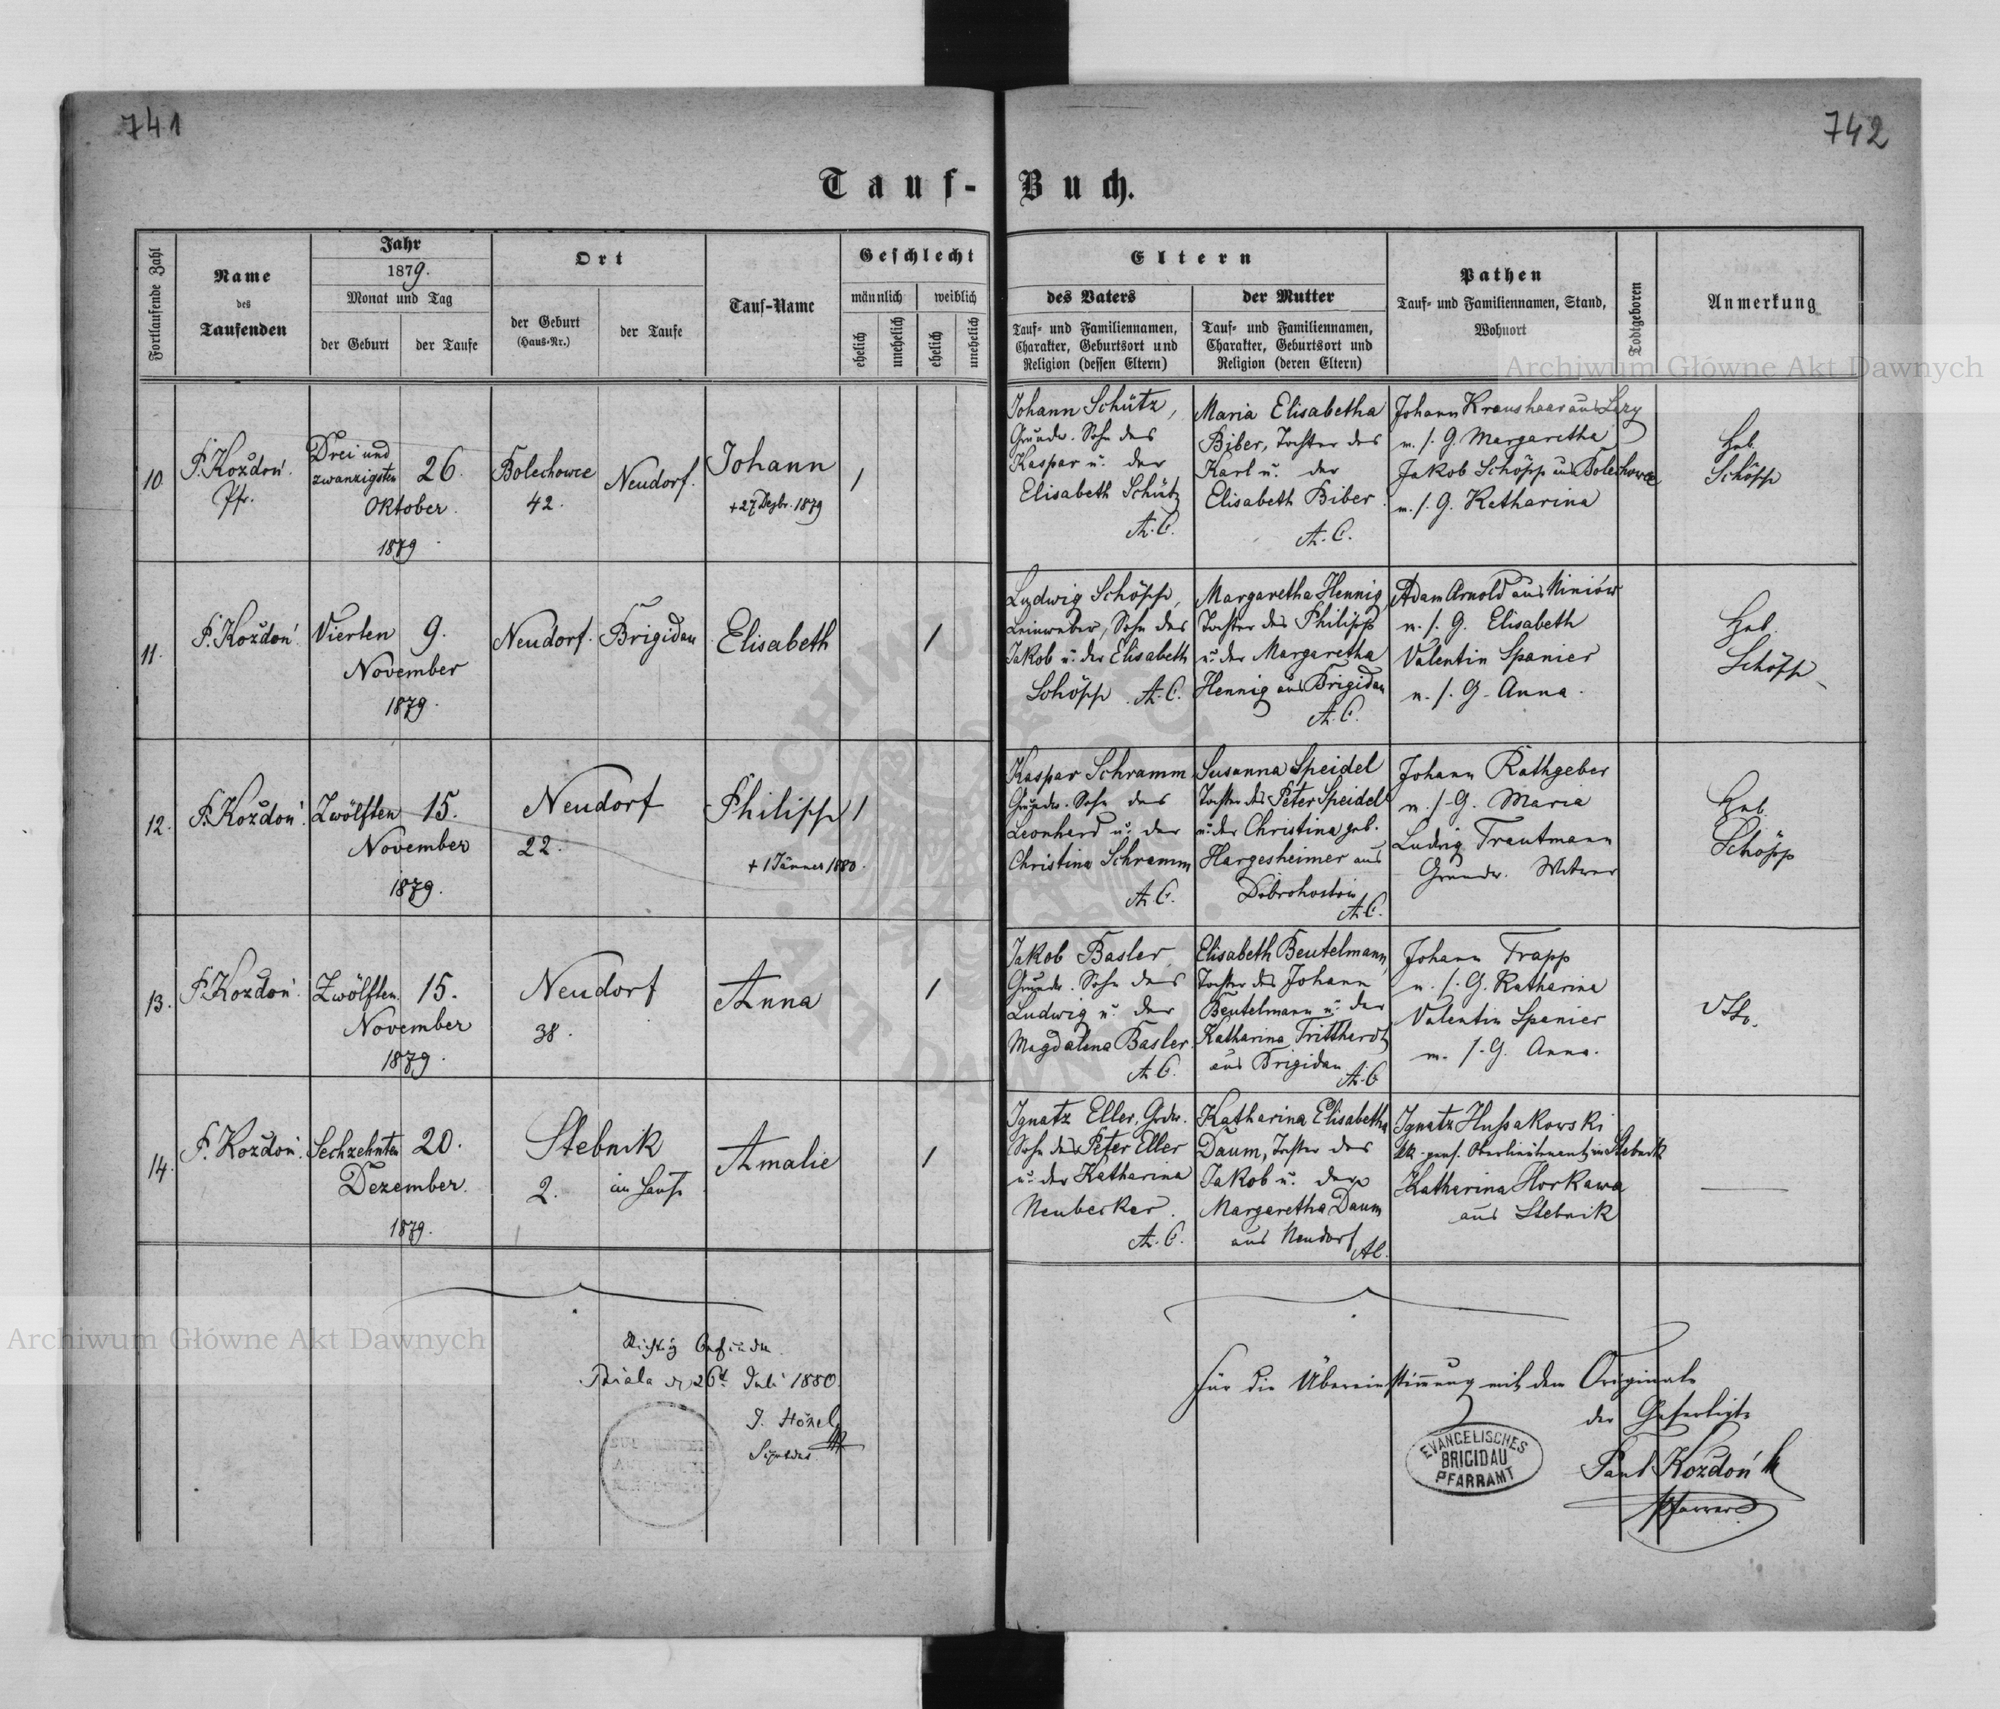 741
742
Tauf-Buch.
Fortlaufende Zahl
Name
des
Taufenden
Jahr
1879.
Monat und Tag
der Geburt
der Taufe
Ort
der Geburt
(Haus-Nr.)
der Taufe
Tauf-Name
Geschlecht
männlich
weiblich
ehelich
unehelich
ehelich
unehelich
Eltern
des Vaters
Tauf- und Familiennamen,
Charakter, Geburtsort und
Religion (dessen Eltern)
der Mutter
Tauf- und Familiennamen,
Charakter, Geburtsort und
Religion (deren Eltern)
Pathen
Tauf- und Familiennamen, Stand,
Wohnort
Todtgeboren
Anmerkung
Archiwum Główne Akt Dawnych
10
P. Kozdoń.
Pfr.
Drei und
zwanzigsten
26.
Oktober.
1879.
Bolechowce
42.
Neudorf.
Johann
+ 27 Dezbr. 1879
1
Johann Schütz,
Grundw. Sohn des
Kaspar u. der
Elisabeth Schütz
A. C.
Maria Elisabetha
Biber, Tochter des
Karl u. der
Elisabeth Biber.
A. C.
Johann Kraushaar aus Lezy
m. s. G. Margaretha
Jakob Schöpp aus Bolechowce
m. s. G. Katharina
Heb.
Schöpp
11.
P. Kozdoń.
Vierten
9.
November
1879.
Neudorf.
Brigidau
Elisabeth
1
Ludwig Schöpp,
Leinweber, Sohn des
Jakob u. der Elisabeth
Schöpp A. C.
Margaretha Hennig
Tochter des Philipp
u. der Margaretha
Hennig aus Brigidau
A. C.
Adam Arnold aus Miniów
m. s. G. Elisabeth
Valentin Spanier
m. s. G. Anna.
Heb.
Schöpp
12.
P. Kozdoń.
Zwölften
15.
November
1879.
Neudorf
22.
Philipp
+ 1 Jänner 1880.
1
Kaspar Schramm
Grundw. Sohn des
Leonhard u. der
Christina Schramm
A. C.
Susanna Speidel
Tochter des Peter Speidel
u. der Christina geb.
Hargesheimer aus
Dobrohostow
A. C.
Johann Rathgeber
m. s. G. Maria
Ludwig Trautmann
Grundw. Witwer
Heb.
Schöpp
13.
P. Kozdoń.
Zwölften
15.
November
1879.
Neudorf
38.
Anna
1
Jakob Basler,
Grundw. Sohn des
Ludwig u. der
Magdalena Basler.
A. C.
Elisabeth Beutelmann,
Tochter des Johann
Beutelmann u. der
Katharina Trittherdt
aus Brigidau
A. C.
Johann Trapp
m. s. G. Katharina
Valentin Spanier
m. s. G. Anna.
14.
P. Kozdoń.
Sechzehnten
20.
Dezember.
1879.
Stebnik
2.
im Hause
Amalie
1
Ignatz Eller, Grdw.
Sohn des Peter Eller
u. der Katharina
Neubecker.
A. C.
Katharina Elisabetha
Daum, Tochter des
Jakob u. der
Margaretha Daum
aus Neudorf
A. C.
Ignatz Hussakowski
kk. pens. Oberlieutenant in Stebnik
Katharina Horkawa
aus Stebnik
Richtig befunden.
Biala d. 26t. Juli 1880.
J. Hönel
Für die Übereinstimmung mit dem Originale
der Gefertigte
EVANGELISCHES
BRIGIDAU
PFARRAMT
Paul Kozdoń
Pfarrer
Archiwum Główne Akt Dawnych